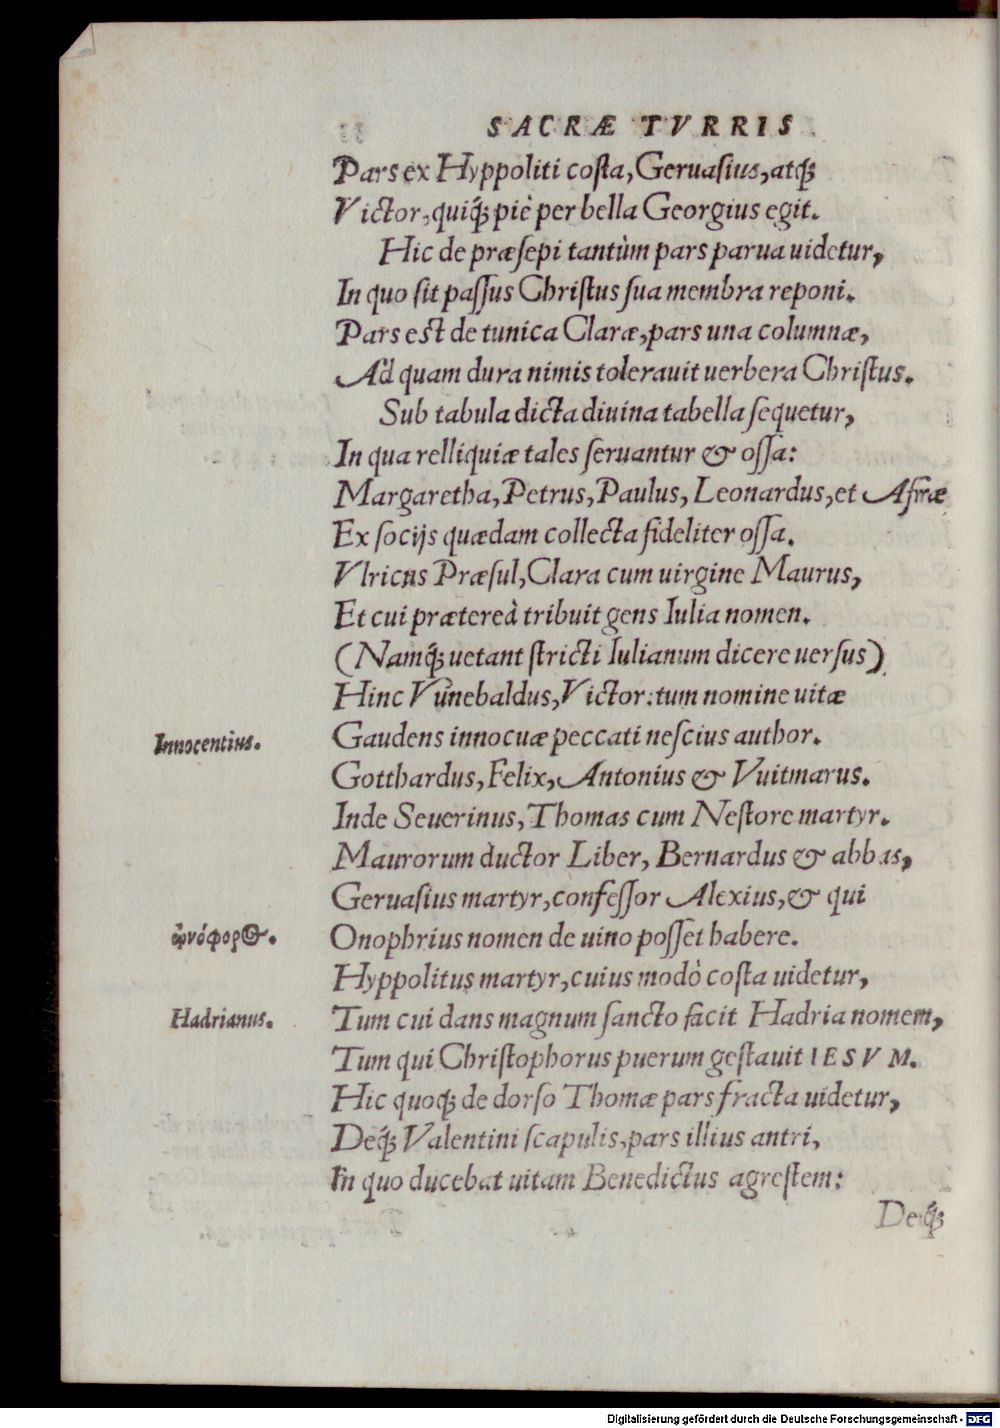 SACRÆ TVRRIS
Pars ex Hyppoliti costa, Geruasius, atq́;
Victor, quiq́; piè per bella Georgius egit.
Hic de præsepi tantùm pars parua uidetur,
In quo sit passus Christus sua membra reponi.
Pars est de tunica Claræ, pars una columnæ,
Ad quam dura nimis tolerauit uerbera Christus.
Sub tabula dicta diuina tabella sequetur,
In qua relliquiæ tales seruantur & ossa:
Margaretha, Petrus, Paulus, Leonardus, et Afræ
Ex socijs quædam collecta fideliter ossa.
Vlricus Præsul, Clara cum uirgine Maurus,
Et cui prætereà tribuit gens Iulia nomen.
(Namq́; uetant stricti Iulianum dicere uersus)
Hinc Vunebaldus, Victor: tum nomine uitæ
Innocentius.
Gaudens innocuæ peccati nescius author.
Gotthardus, Felix, Antonius & Vuitmarus.
Inde Seuerinus, Thomas cum Nestore martyr.
Maurorum ductor Liber, Bernardus & abbas,
Geruasius martyr, confessor Alexius, & qui
Onophrius nomen de uino posset habere.
Hyppolitus martyr, cuius modò costa uidetur,
Hadrianus.
Tum cui dans magnum sancto facit Hadria nomem,
Tum qui Christophorus puerum gestauit IESVM.
Hic quoq; de dorso Thomæ pars fracta uidetur,
Deq́; Valentini scapulis, pars illius antri,
In quo ducebat uitam Benedictus agrestem:
Deq́;
Digitalisierung gefördert durch die Deutsche Forschungsgemeinschaft - DFG